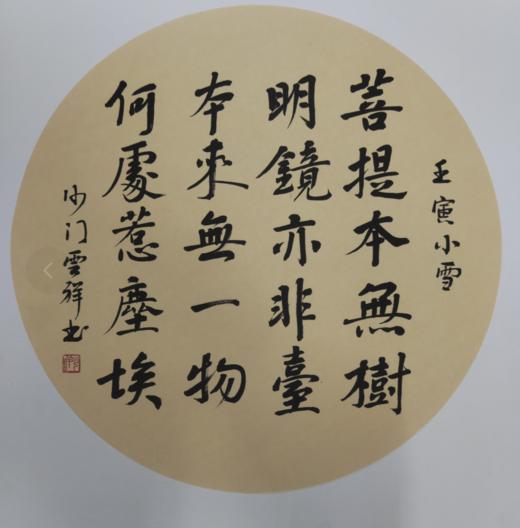 壬寅小雪
菩提本無樹
明鏡亦非臺
本來無一物
何處惹塵埃
沙门雲祥书